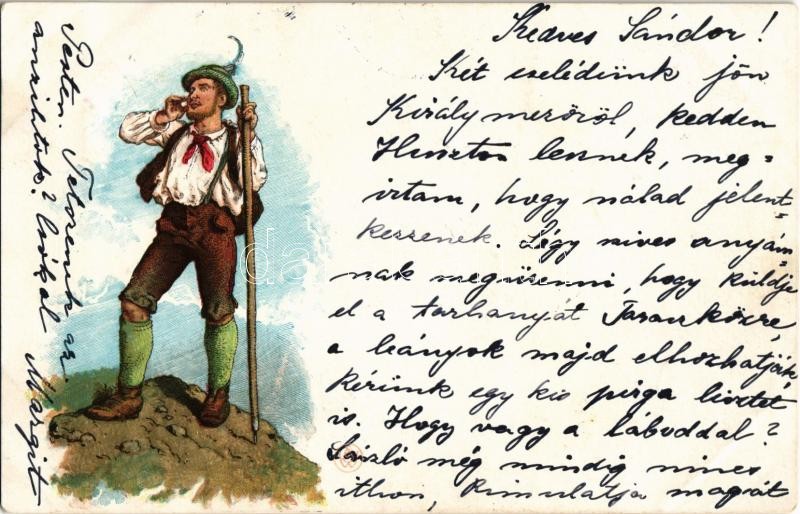 Kedves Sándor!
Két cselédünk jön
Királymezőről, kedden
Huszton lesznek, meg-
irtam, hogy nálad jelent-
kezzenek. Légy szives anyám-
nak megüzenni, hogy küldje
el a tarhanyát Taraczközre,
a leányok majd elhozhatják,
kérünk egy kis pirga lisztet
is. Hogy vagy a láboddal?
László még mindig nincs
itthon, kimulatja magát
Pesten. Tetszenek az
anzihtok? Csókol Margit